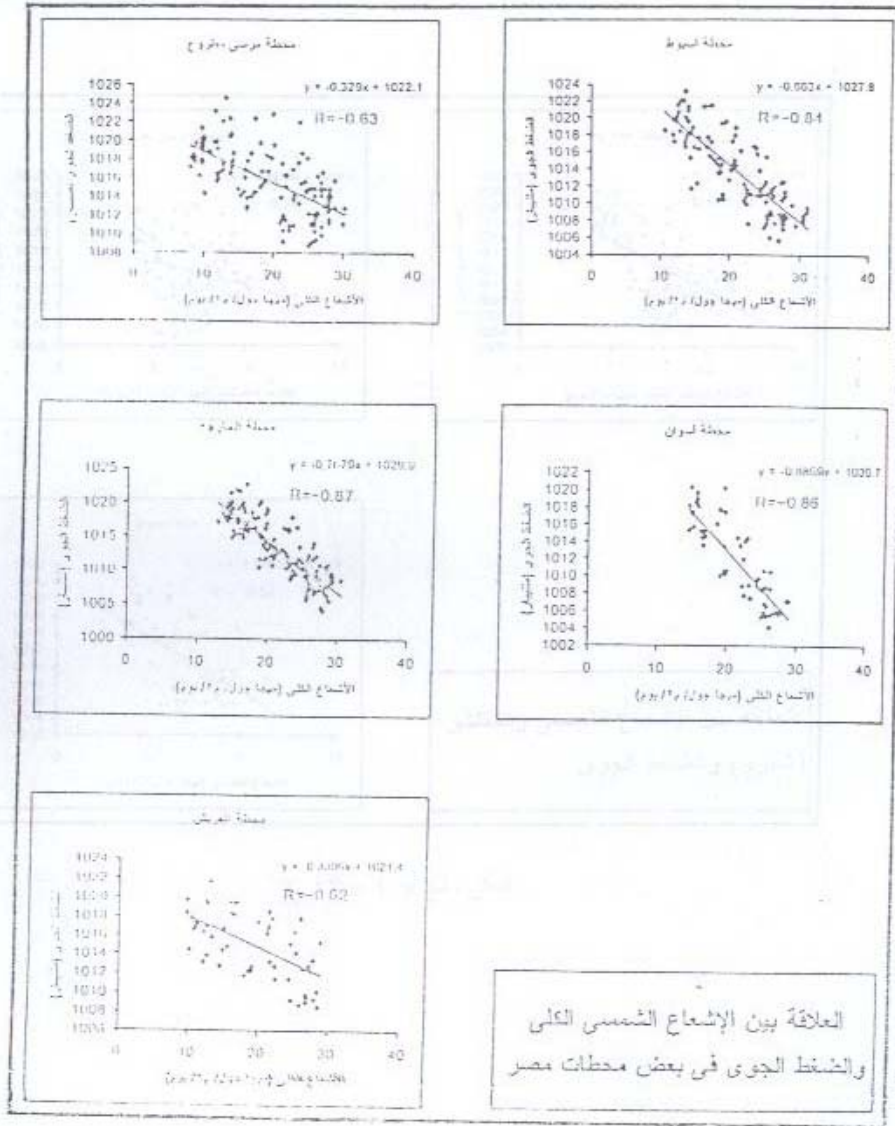 محطة مرسى مطروح
y = -0.329x + 1022.1
R=-0.63
1026
1024
1022
1020
1018
1016
1014
1012
1010
1008
0
10
20
30
40
الأشعاع الكلى (ميجا جول/ م٢/يوم)
محطة اسيوط
y = -0.663x + 1027.8
R=-0.84
الضغط الجوى
1024
1022
1020
1018
1016
1014
1012
1010
1008
1006
1004
0
10
20
30
40
الأشعاع الكلى (ميجا جول/ م٢/يوم)
محطة
R=-0.87
الضغط الجوى
1025
1020
1015
1010
1005
1000
0
10
20
30
40
الأشعاع الكلى (ميجا جول/ م٢/يوم)
محطة اسوان
R=-0.86
الضغط الجوى
1022
1020
1018
1016
1014
1012
1010
1008
1006
1004
1002
0
10
20
30
40
الأشعاع الكلى (ميجا جول/ م٢/يوم)
محطة العريش
R=-0.62
1024
1022
1020
1018
1016
1014
1012
1010
1008
1006
0
10
20
30
40
الأشعاع الكلى (ميجا جول/ م٢/يوم)
العلاقة بين الإشعاع الشمسى الكلى
والضغط الجوى فى بعض محطات مصر